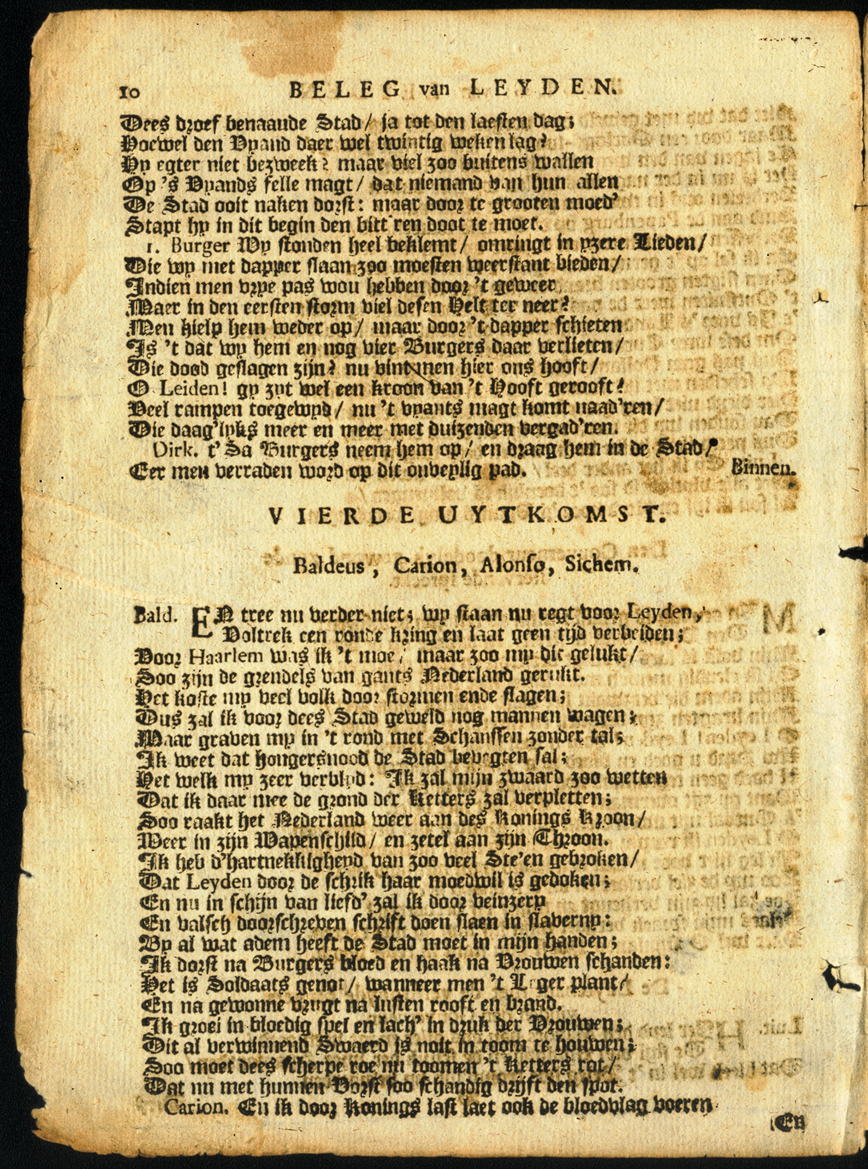 10 BELEG van LEYDEN.
Dees droef benaaude Stad/ ja tot den laesten dag;
Hoewel den Vyand daer wel twintig weken lag?
Hy egter niet bezweek? maar viel zoo buitens wallen
Op 's Vyands felle magt/ dat niemand van hun allen
De Stad ooit naken dorst: maar door te grooten moed'
Stapt hy in dit begin den bitt'ren doot te moet.
1. Burger Wy stonden heel beklemt/ omringt in yzere Lieden/
Die wy met dapper slaan zoo moesten weerstant bieden/
Indien men vrye pas wou hebben door 't geweer
Maer in den eersten storm viel desen Helt ter neer?
Men hielp hem weder op/ maar door 't dapper schieten
Is 't dat wy hem en nog vier Burgers daar verlieten/
Die dood geslagen zijn? nu vinnen hier ons hooft/
O Leiden! gy zyt wel een kroon van 't Hooft gerooft?
Veel rampen toegewyd/ nu 't vyants magt komt naad'ren/
Die daag'lyks meer en meer met duizenden vergad'ren.
Dirk. t' Sa Burgers neem hem op/ en draag hem in de Stad/
Eer men verraden word op dit onveylig pad. Binnen.
VIERDE UYTKOMST.
Baldeus, Carion, Alonso, Sichem.
Bald. EN tree nu verder niet; wy staan nu regt voor Leyden,
Voltrek een ronde kring en laat geen tijd verbeiden;
Voor Haarlem was ik 't moe/ maar zoo my dit gelukt/
Soo zijn de grendels van gants Nederland gerukt.
Het koste my veel volk door stormen ende slagen;
Dus zal ik voor dees Stad geweld nog mannen wagen;
Maar graven my in 't rond met Schanssen zonder tal;
Ik weet dat hongersnood de Stad bevegten sal;
Het welk my zeer verblyd: Ik zal mijn zwaard zoo wetten
Dat ik daar mee de grond der Ketters zal verpletten;
Soo raakt het Nederland weer aan des Konings Kroon/
Weer in zijn Wapenschild/ en zetel aan zijn Throon.
Ik heb d'hartnekkigheyd van zoo veel Ste'en gebroken/
Dat Leyden door de schrik haar moedwil is gedoken;
En nu in schijn van liefd' zal ik door veinzery
En valsch doorschreven schrift doen slaen in slaverny:
By al wat adem heeft de Stad moet in mijn handen;
Ik dorst na Burgers bloed en haak na Vrouwen schanden:
Het is Soldaats genot/ wanneer men 't Leger plant/
En na gewonne vrugt na lusten rooft en brand.
Ik groei in bloedig spel en lach' in druk der Vrouwen;
Dit al verwinnend Swaerd is noit in toom te houwen;
Soo moet dees scherpe roe nu toomen 't Ketters rot/
Dat nu met hunnen Vorst soo schandig drijft den spot.
Carion. En ik door Konings last laet ook de bloedvlag voeren
En